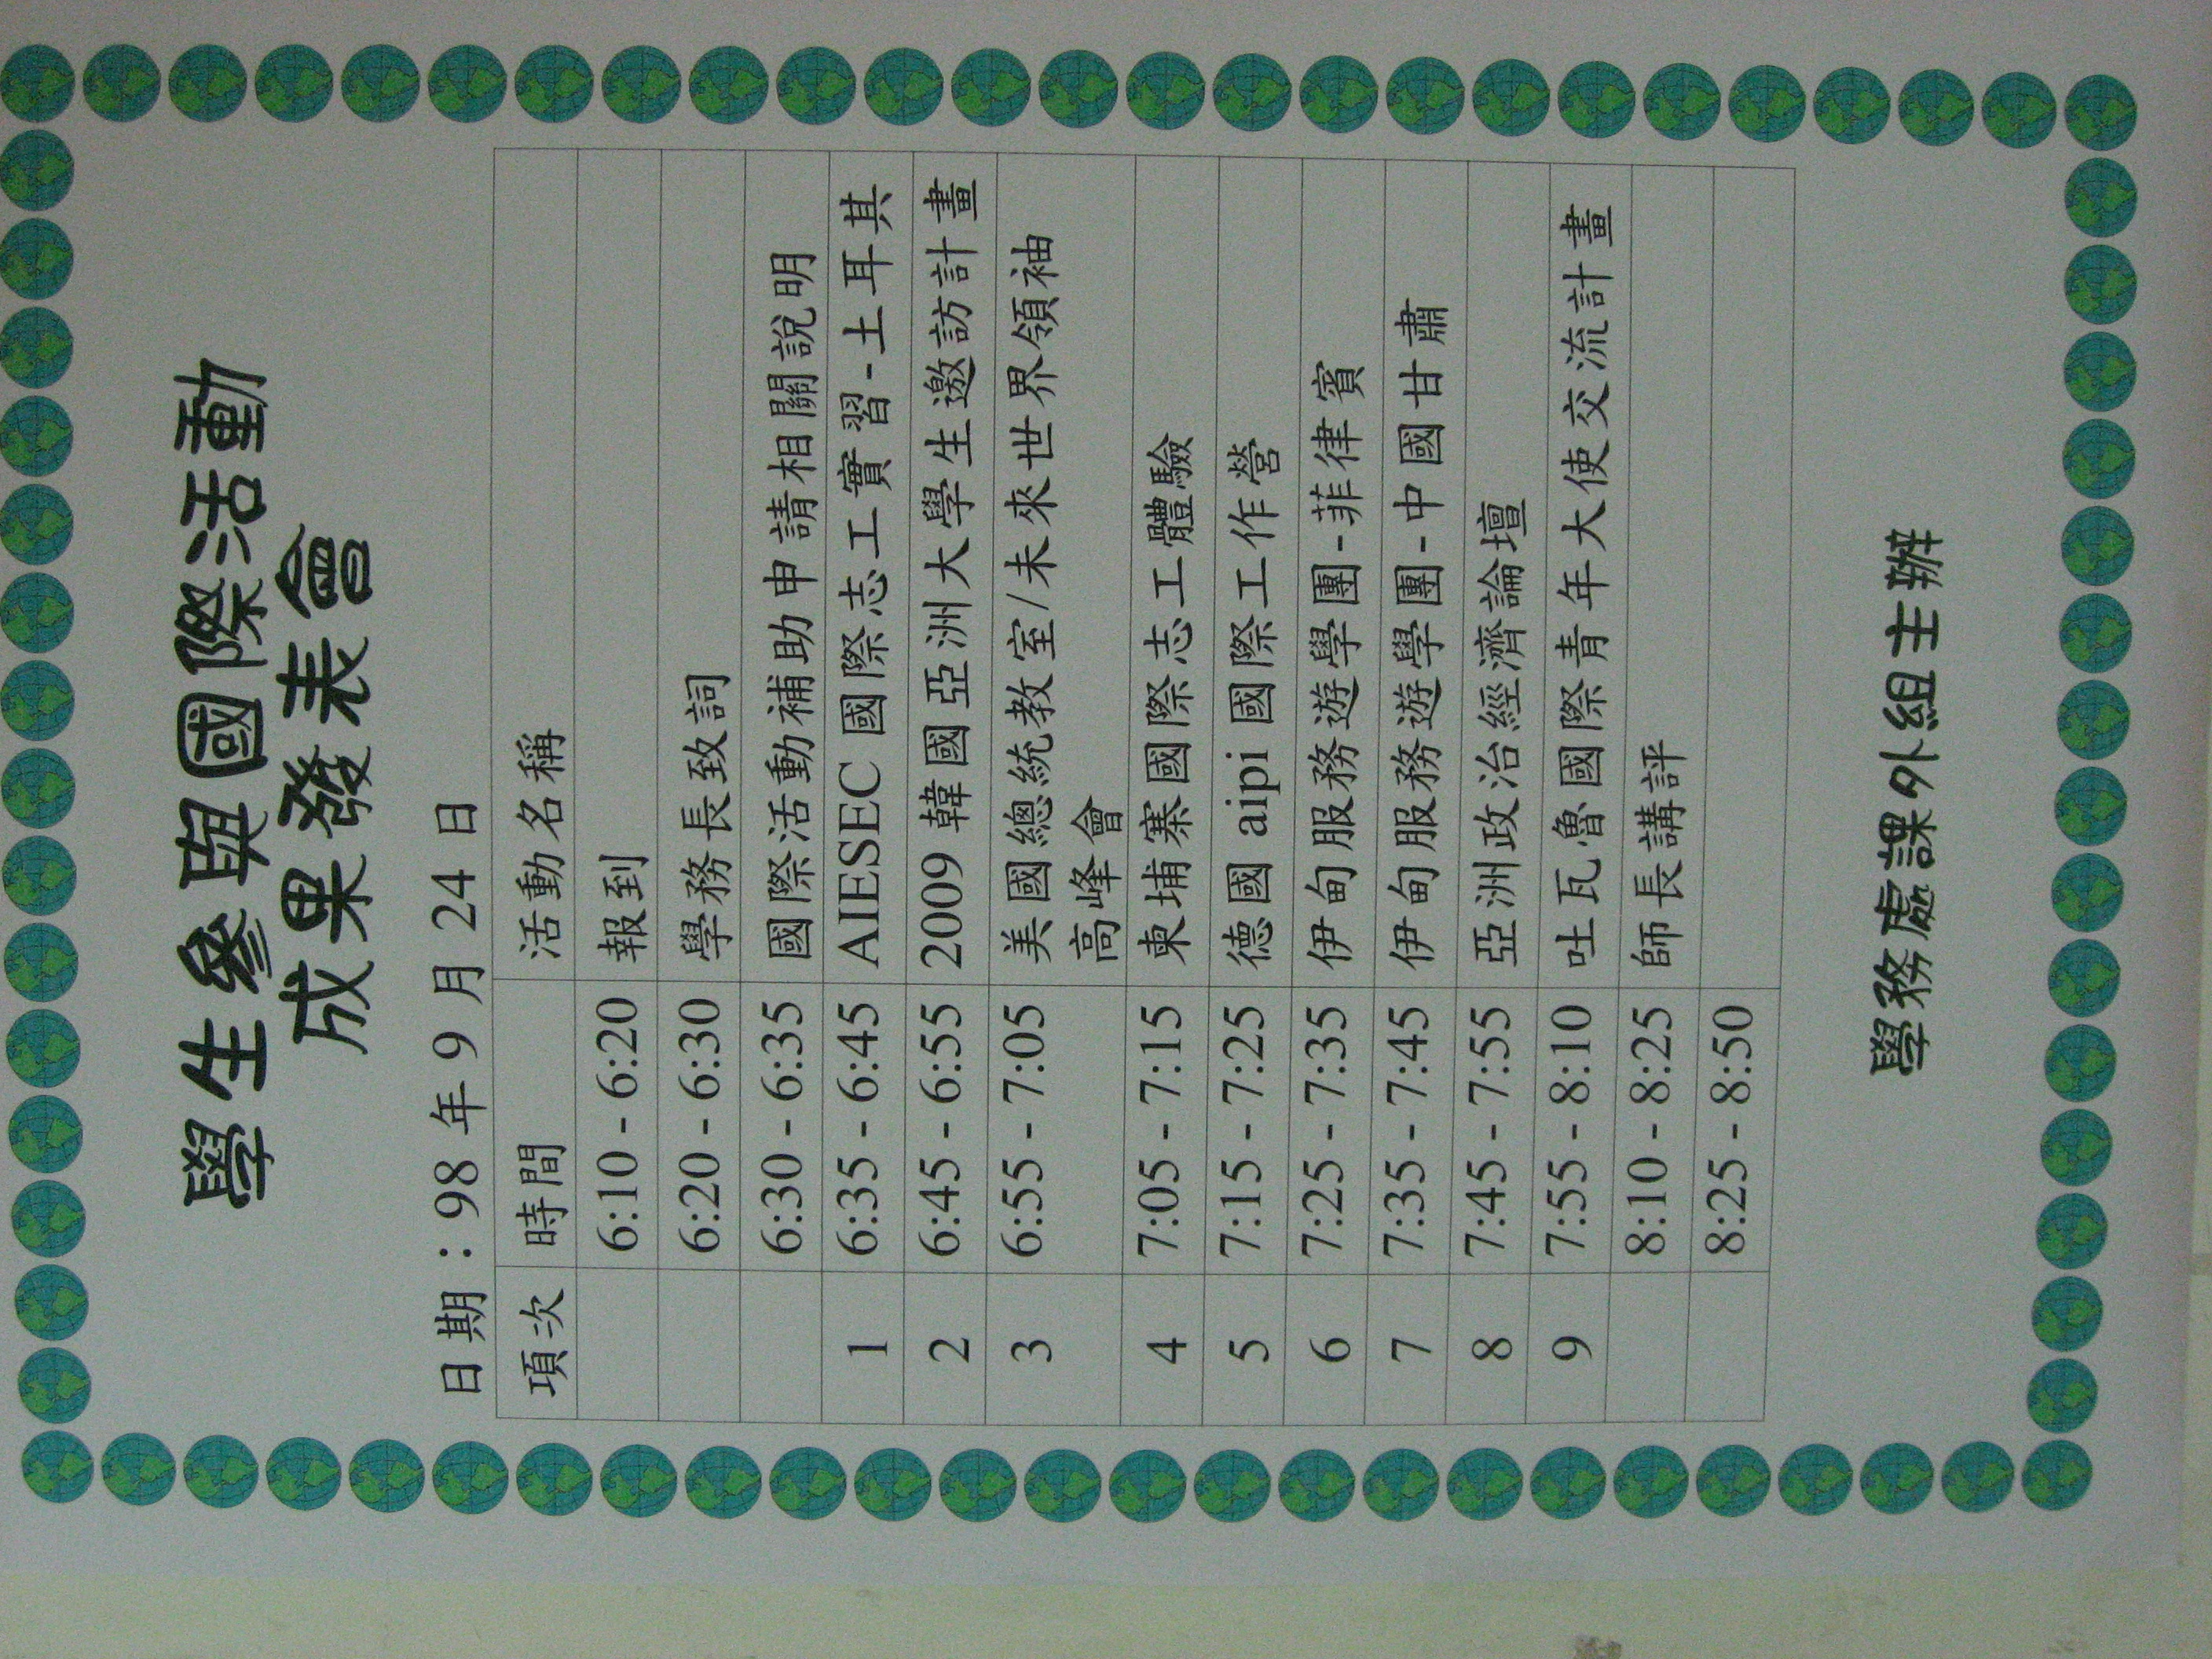 學生參與國際活動
成果發表會
日期：98 年 9 月 24 日
項次 時間 活動名稱
6:10 - 6:20 報到
6:20 - 6:30 學務長致詞
6:30 - 6:35 國際活動補助申請相關說明
1 6:35 - 6:45 AIESEC 國際志工實習-土耳其
2 6:45 - 6:55 2009 韓國亞洲大學生邀訪計畫
3 6:55 - 7:05 美國總統教室/未來世界領袖
高峰會
4 7:05 - 7:15 柬埔寨國際志工體驗
5 7:15 - 7:25 德國 aipi 國際工作營
6 7:25 - 7:35 伊甸服務遊學團-菲律賓
7 7:35 - 7:45 伊甸服務遊學團-中國甘肅
8 7:45 - 7:55 亞洲政治經濟論壇
9 7:55 - 8:10 吐瓦魯國際青年大使交流計畫
8:10 - 8:25 師長講評
8:25 - 8:50
學務處課外組主辦